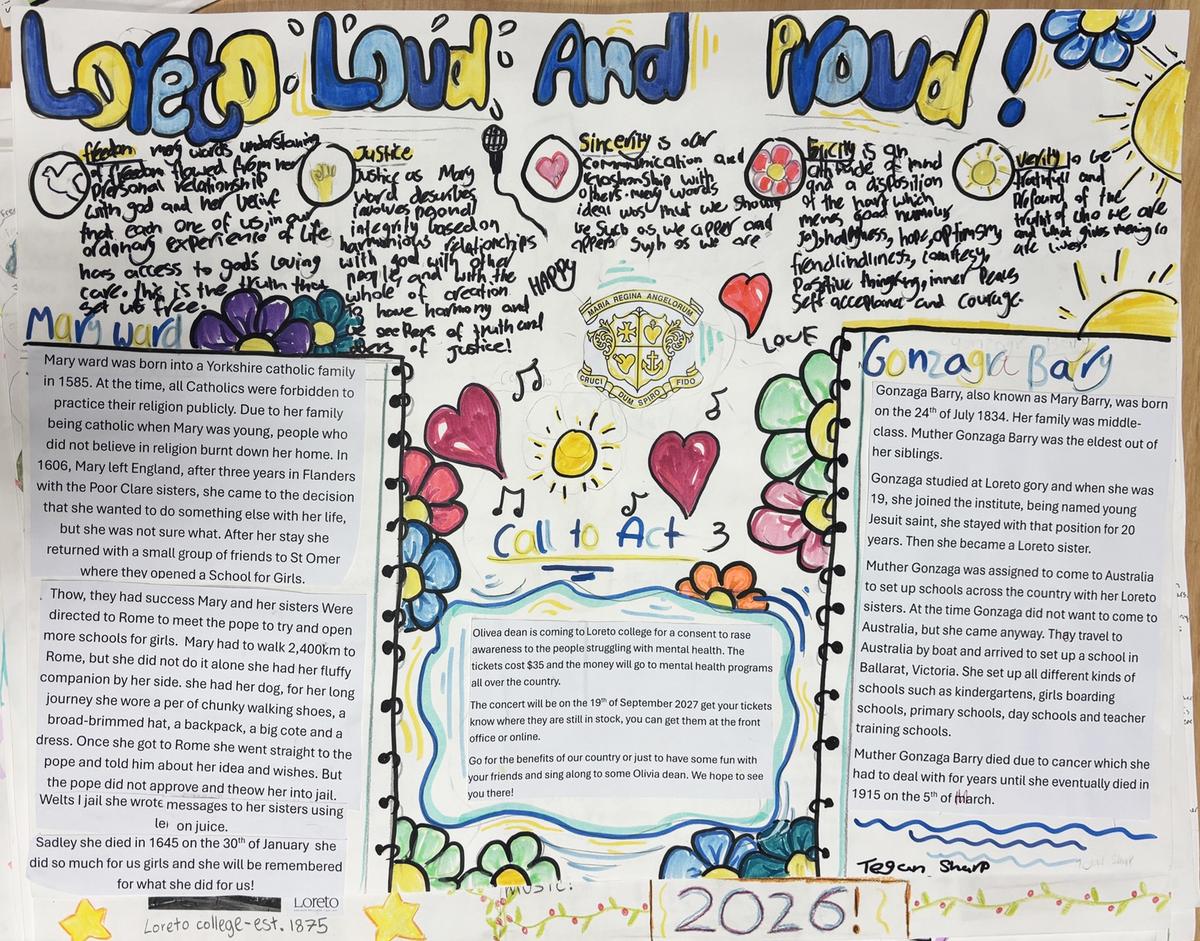 Loreto Loud And Proud!
freedom mary words understanding
of freedom flowed from her
personal relationship
with god and her belief
that each one of us, in our
ordinary experience of life
has access to god's loving
care. this is the truth that
set us free.
Justice
Justice as Mary
word describes
involves personal
integrity based on
harmonious relationships
with god with other
people, and with the
whole of creation
To have harmony and
be seekers of truth and
of Justice!
Sincerity is our
communication and
with
others. mary words
ideal was that we should
be Such as we apper and
apper Such as we are
is an
of mind
and a disposition
of the hart which
menes good humour
Joy, happyness, hope, optimism
courtesy,
Positive thinking, inner Peace
Self acceptance and courage.
verity to be
truthfull and
Profound of the
truth of who we are
and what gives mening to
are lives.
HAPPY
LOVE
MARIA REGINA ANGELORUM
CRUCI DUM SPIRO FIDO
Mary ward
Mary ward was born into a Yorkshire catholic family
in 1585. At the time, all Catholics were forbidden to
practice their religion publicly. Due to her family
being catholic when Mary was young, people who
did not believe in religion burnt down her home. In
1606, Mary left England, after three years in Flanders
with the Poor Clare sisters, she came to the decision
that she wanted to do something else with her life,
but she was not sure what. After her stay she
returned with a small group of friends to St Omer
where they opened a School for Girls.
Thow, they had success Mary and her sisters Were
directed to Rome to meet the pope to try and open
more schools for girls. Mary had to walk 2,400km to
Rome, but she did not do it alone she had her fluffy
companion by her side. she had her dog, for her long
journey she wore a per of chunky walking shoes, a
broad-brimmed hat, a backpack, a big cote and a
dress. Once she got to Rome she went straight to the
pope and told him about her idea and wishes. But
the pope did not approve and theow her into jail.
Welts I jail she wrote messages to her sisters using
le on juice.
Sadley she died in 1645 on the 30th of January she
did so much for us girls and she will be remembered
for what she did for us!
Loreto
Loreto college-est. 1875
Call to Act 3
Olivea dean is coming to Loreto college for a consent to rase
awareness to the people struggling with mental health. The
tickets cost $35 and the money will go to mental health programs
all over the country.
The concert will be on the 19th of September 2027 get your tickets
know where they are still in stock, you can get them at the front
office or online.
Go for the benefits of our country or just to have some fun with
your friends and sing along to some Olivia dean. We hope to see
you there!
MUSIC:
2026!
Gonzagra Barry
Gonzaga Barry, also known as Mary Barry, was born
on the 24th of July 1834. Her family was middle-
class. Muther Gonzaga Barry was the eldest out of
her siblings.
Gonzaga studied at Loreto gory and when she was
19, she joined the institute, being named young
Jesuit saint, she stayed with that position for 20
years. Then she became a Loreto sister.
Muther Gonzaga was assigned to come to Australia
to set up schools across the country with her Loreto
sisters. At the time Gonzaga did not want to come to
Australia, but she came anyway. They travel to
Australia by boat and arrived to set up a school in
Ballarat, Victoria. She set up all different kinds of
schools such as kindergartens, girls boarding
schools, primary schools, day schools and teacher
training schools.
Muther Gonzaga Barry died due to cancer which she
had to deal with for years until she eventually died in
1915 on the 5th of march.
Tegan Sharp